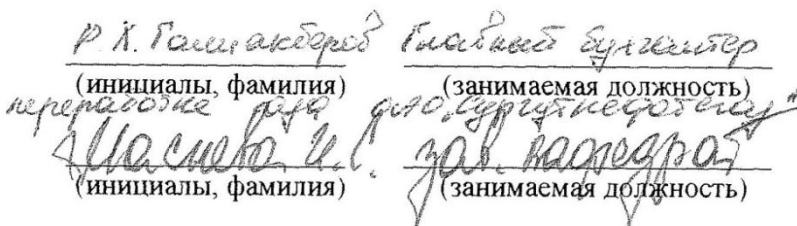 Р. Х. Галиакберов Главный бухгалтер
(инициалы, фамилия) (занимаемая должность)
переработка газа ОАО "Сургутнефтегаз"
Маснева И. С. зав. кафедрой
(инициалы, фамилия) (занимаемая должность)